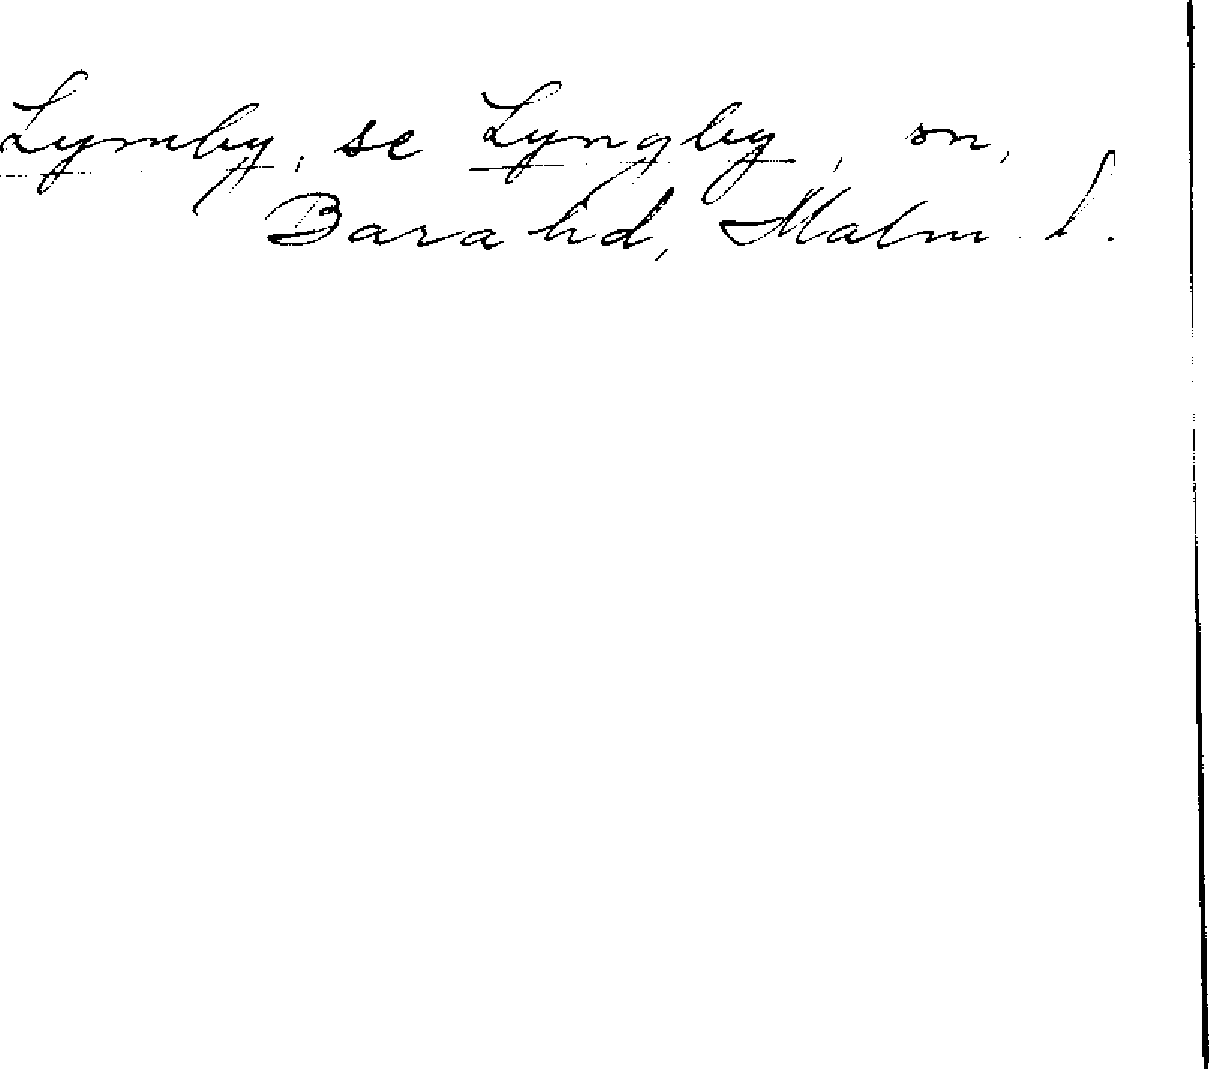 Lymby, se Lyngby, sn,
Bara hd, Malm. l.